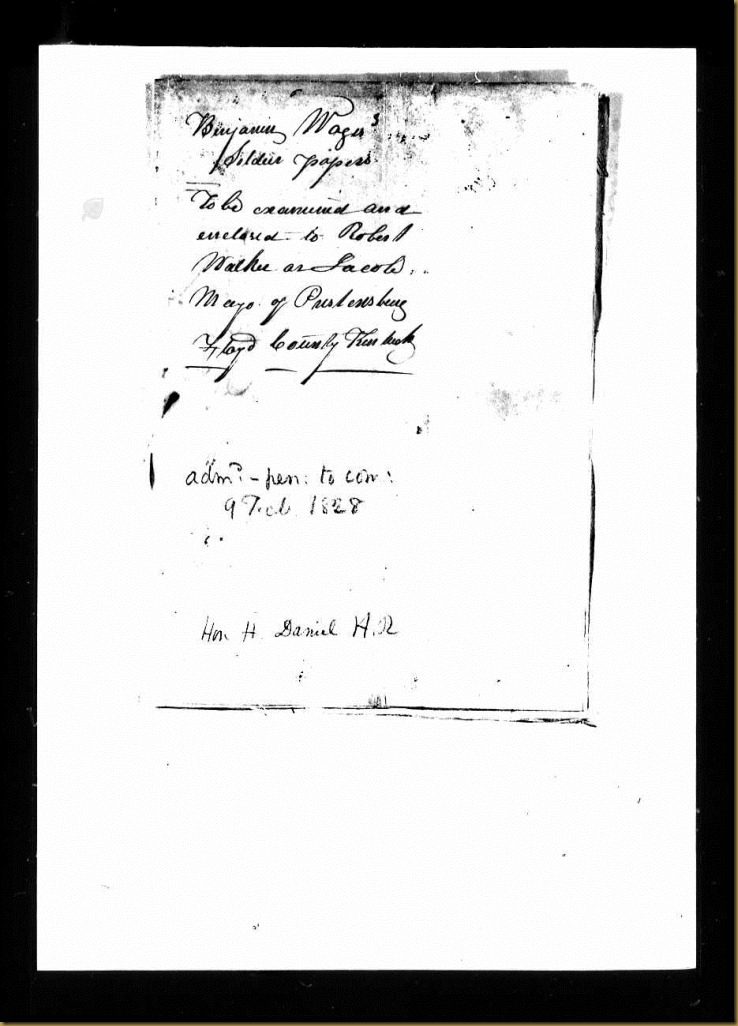 Benjamin Wager's
Soldier papers
To be examined and
enclosed to Robert
Walker or Jacob
Mayo of Prestonsburg
Floyd County Kentuck
adm.d - pen: to com:
9 Feb. 1828
Hon H. Daniel H.R